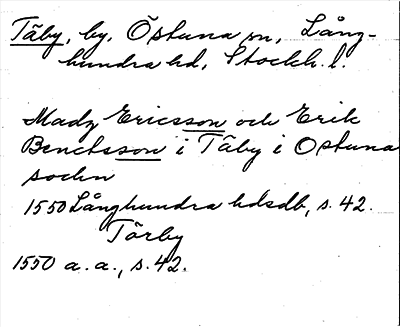 Täby, by, Östuna sn, Lång-
hundra hd, Stockh. l.
Madz Ericsson och Erik
Benctsson i Täby i Ostuna
sochn
1550 Långhundra hdsdb, s. 42.
Törby
1550 a. a., s. 42.